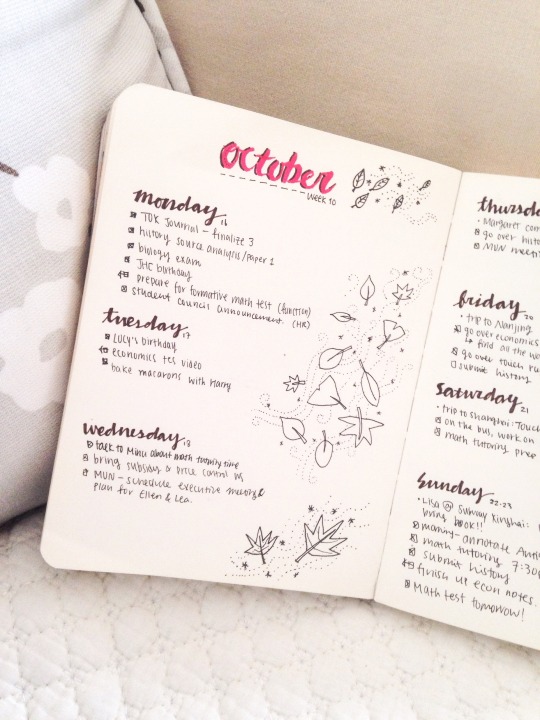 october
week 10
monday 16
TOK Journal - finalize 3
history source analysis/paper 1
biology exam
JHC birthday
prepare for formative math test (function)
student council announcement (HR)
tuesday 17
LUCY's birthday
economics tes video
bake macarons with Harry
wednesday 18
talk to Minu about math tutoring time
bring subsidy & price control ws
MUN - schedule executive meeting &
plan for Ellen & Lea.
thursd
Margaret com
go over histo
MUN meeti
friday 20
trip to Nanjing
go over economics
↳ find all the wo
go over touch ru
submit history
saturday 21
trip to shanghai: Touch
on the bus, work on
math tutoring prep
sunday 22-23
Lisa @ Subway Xinghai:
bring book!!
morning - annotate Anti
math tutoring 7:30p
submit history
finish up econ notes.
Math test tomorrow!